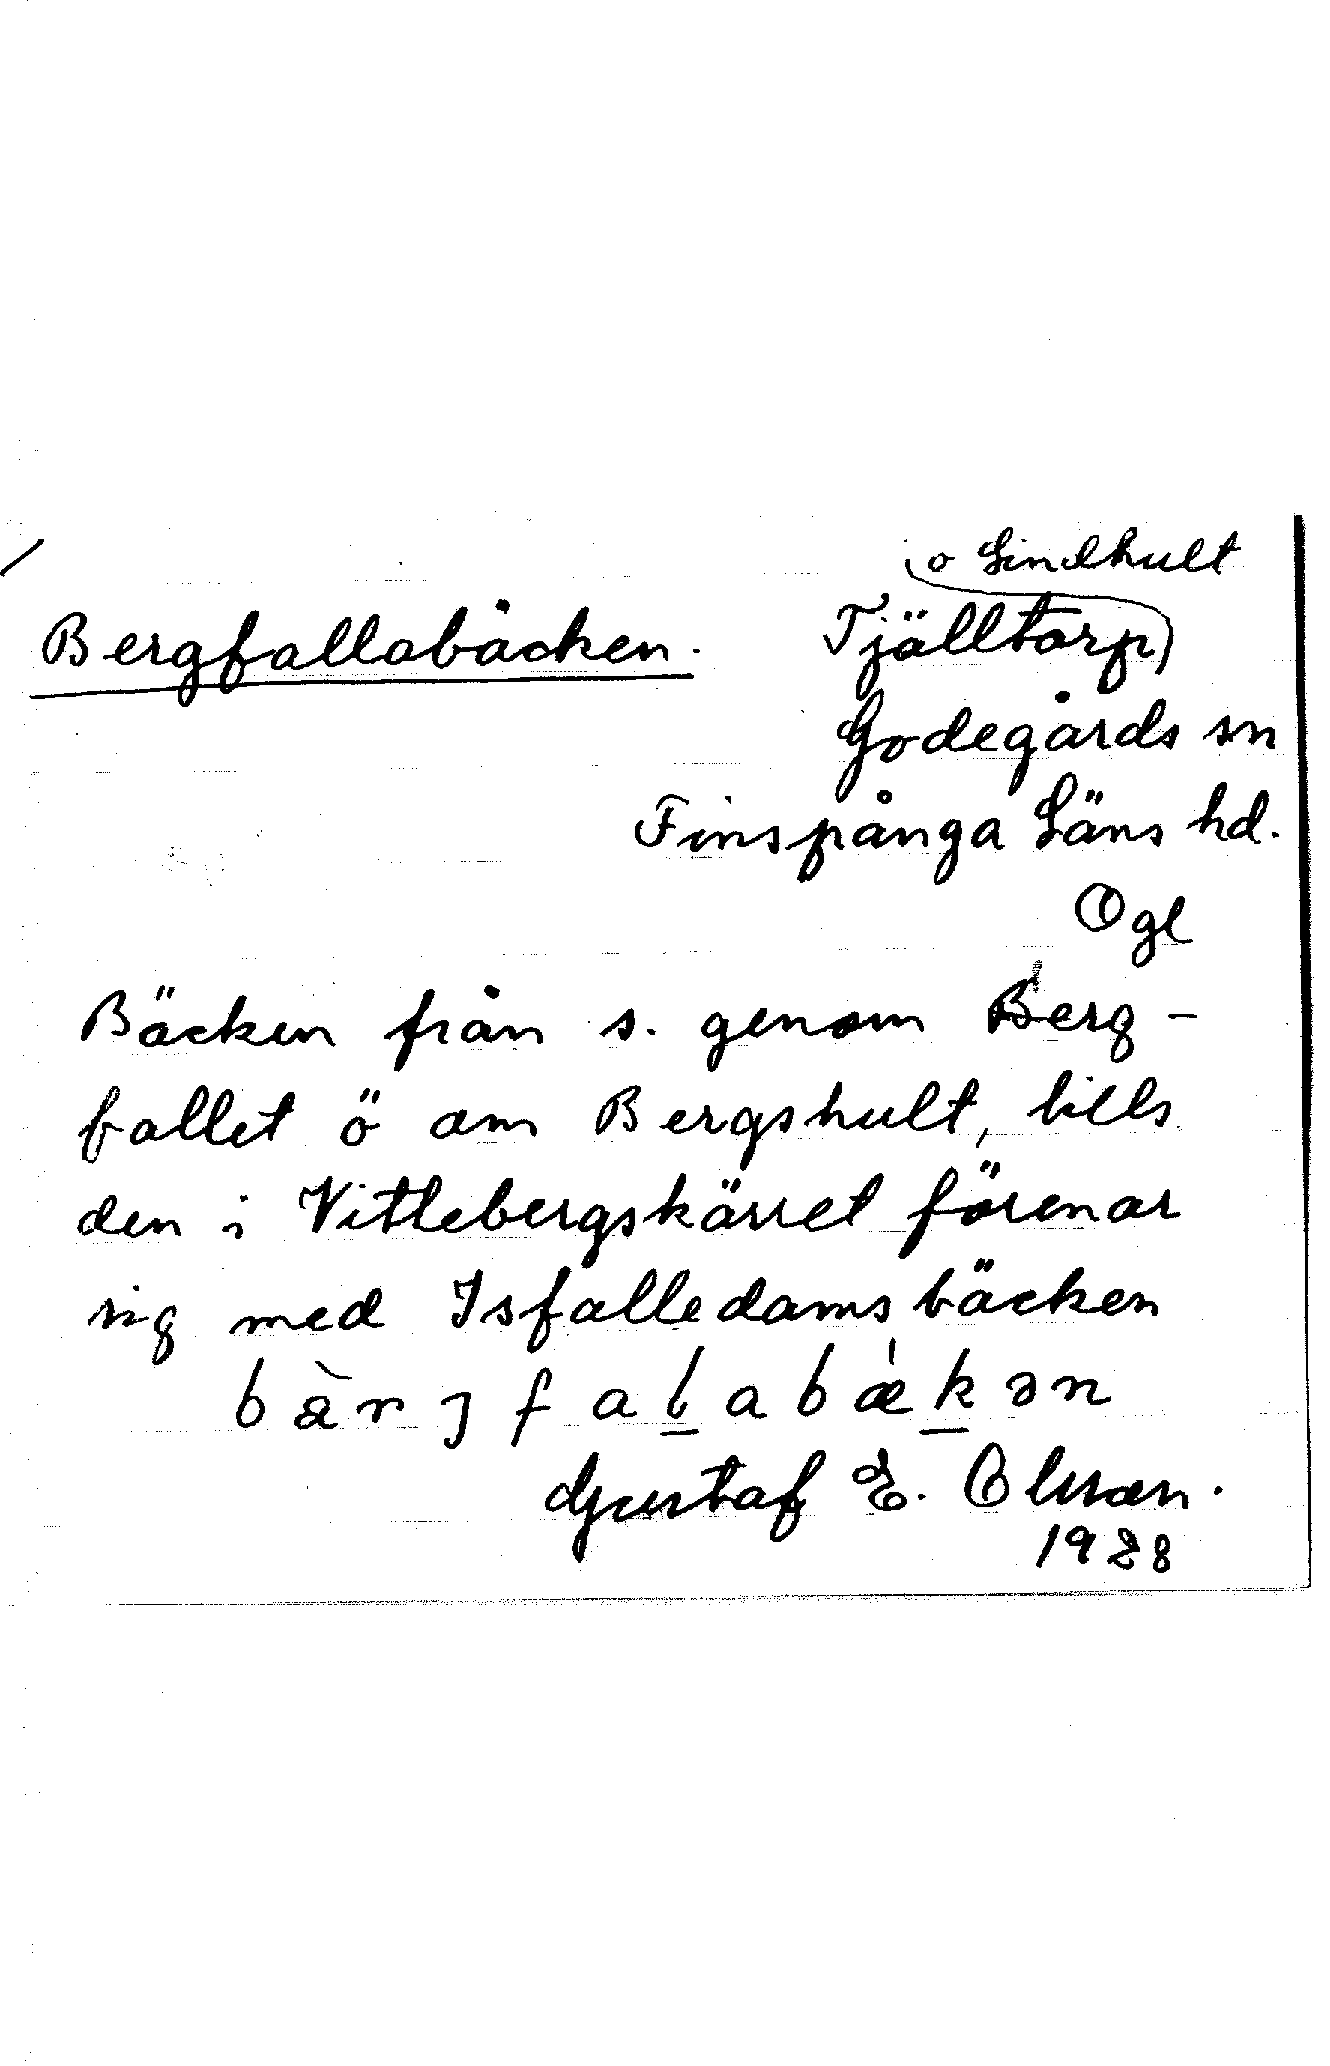 o Lindhult
Bergfallabäcken. Tjälltorp
Godegårds sn
Finspånga Läns hd.
Ögl
Bäcken från s. genom Berg-
fallet ö om Bergshult, tills
den i Vittlebergskärret förenar
sig med Isfalledamsbäcken
bæ̀rȷfalabækən
Gustaf E. Olsson.
1928